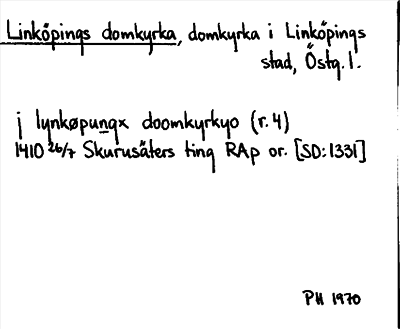 Linköpings domkyrka, domkyrka i Linköpings
stad, Östg. l.
j lynkøpungx doomkyrkyo (r. 4)
1410 26/7 Skurusäters ting RAp or. [SD: 1331]
PH 1970